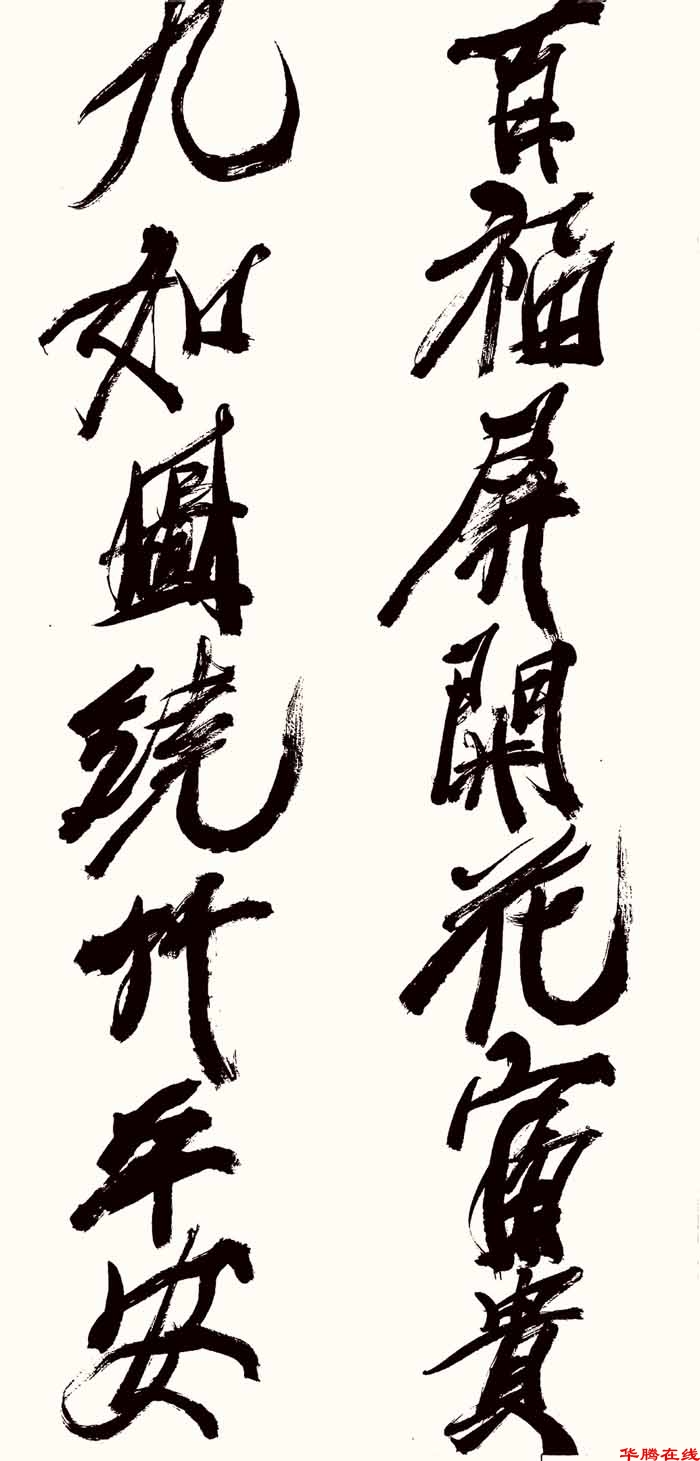 百福屏開花富貴
九如圖繞竹平安
华腾在线